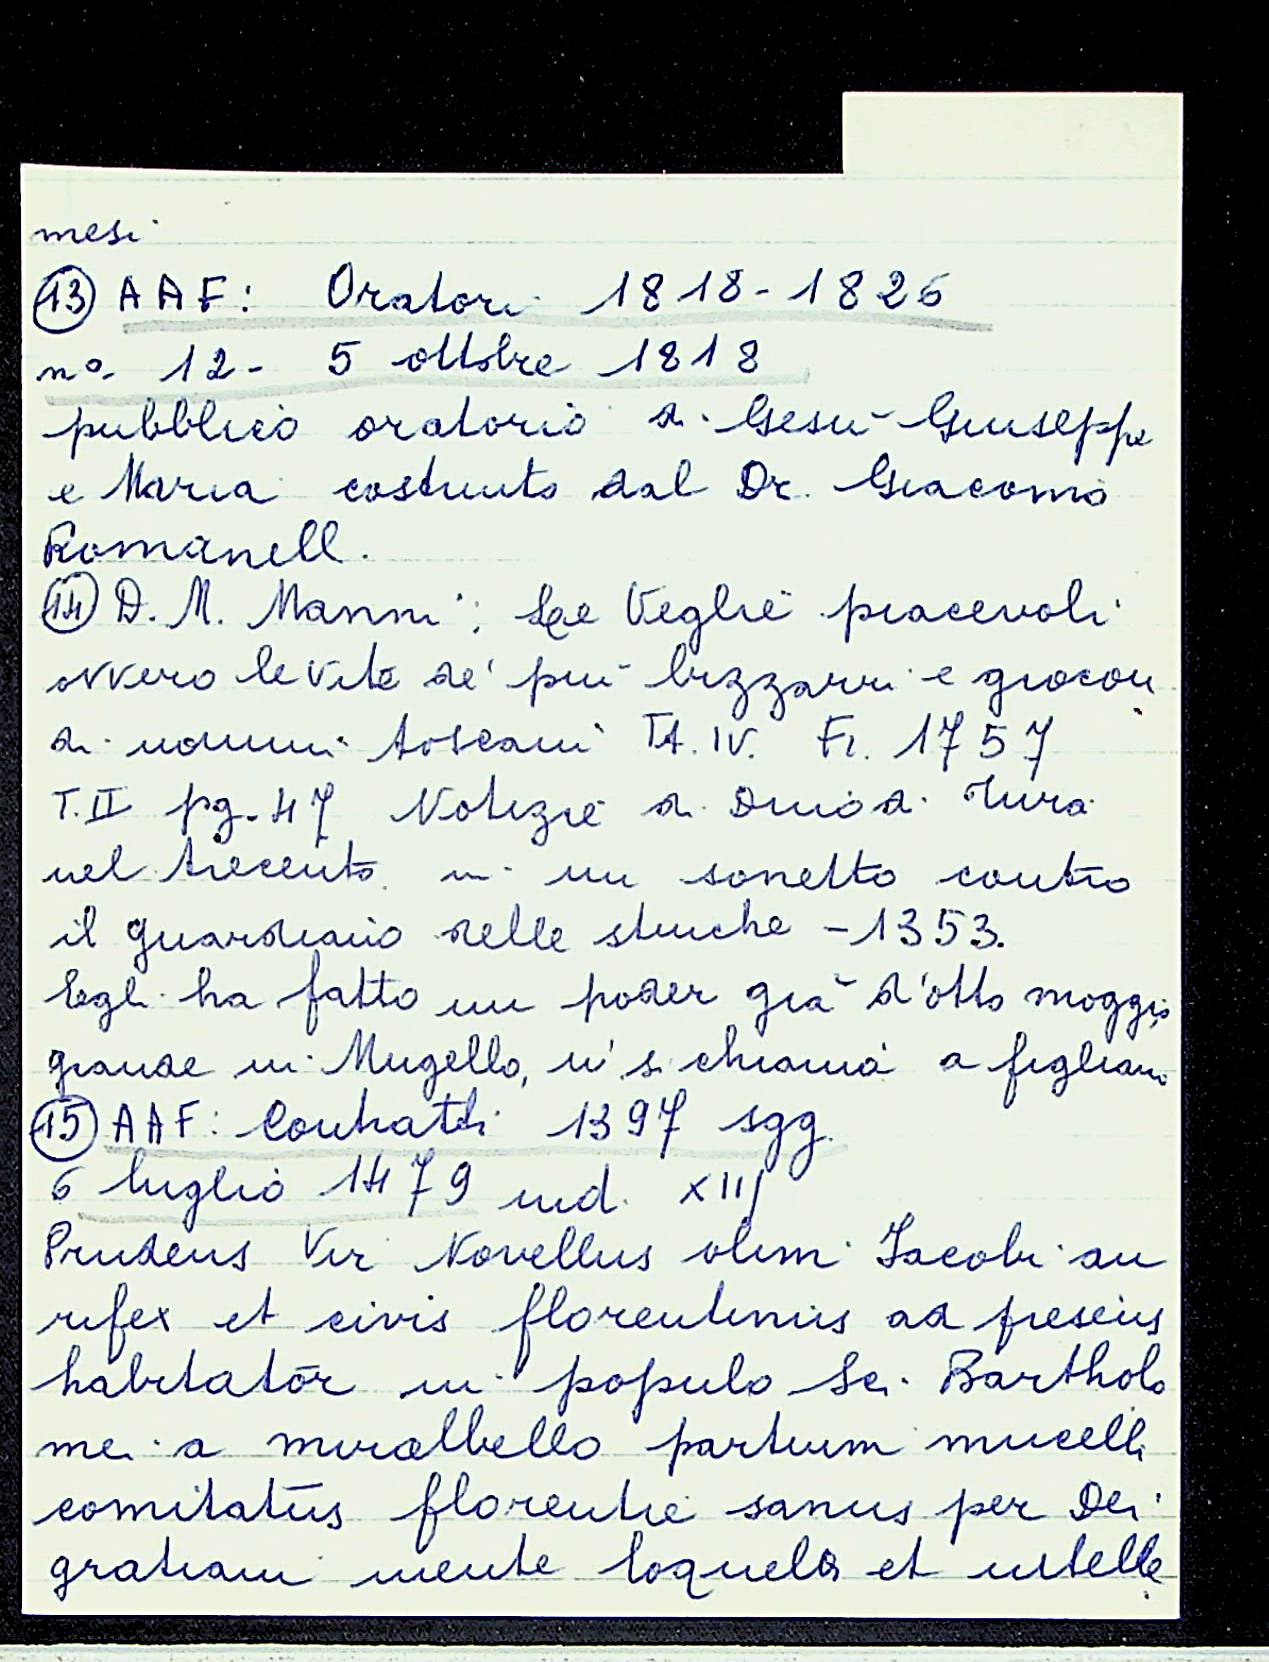 mesi
13 AAF: Oratori 1818-1826
no. 12- 5 ottobre 1818
pubblico oratorio di Gesù Giuseppe
e Maria costruito dal Dr. Giacomo
Romanelli.
14 D. M. Manni; Le Veglie piacevoli
ovvero le vite de' più bizzarri e giocon
di uomini toscani Tt. IV. Fi. 1757
T. II pg. 47 Notizie di Dino di Tura
nel trecento in un sonetto contro
il guardiano delle stinche - 1353.
Egli ha fatto un poder già d'otto moggio
grande in Mugello, u' si chiama a figliano
15 AAF: Contratti 1397 sgg.
6 luglio 1479 ind. XIIJ
Prudens Vir Novellus olim Jacobi au
rifex et civis florentinus ad presens
habitatōr in populo Sci. Bartholo
mei a miralbello partium mucelli
comitatūs florentie sanus per Dei
gratiam mente loquela et intelle